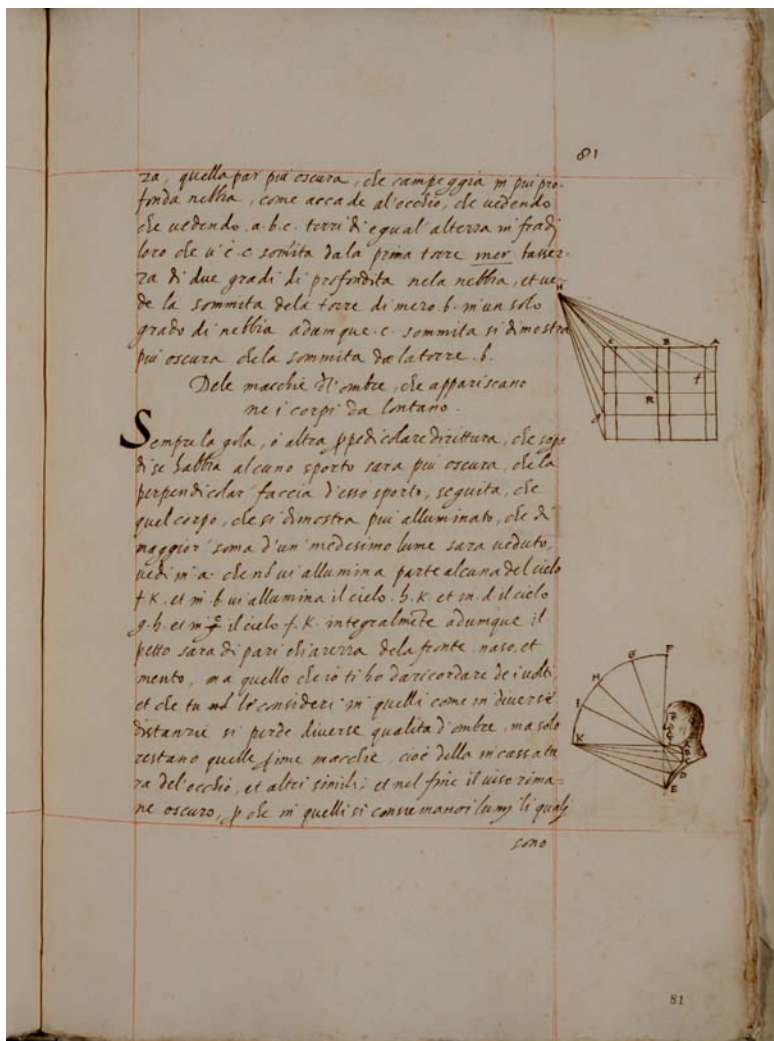 81
za, quella par piu oscura, che campeggia in piu pro-
fonda nebbia, come accade al'occhio, che uedendo
che uedendo .a.b.c. torri di egual' altezza infra di
loro che u'è .c. som̃ita dala prima torre mer bassez-
za di due gradi di profondita nela nebbia, et ue-
de la sommita dela torre di mezo .b. in un solo
grado di nebbia adumque .c. sommita si dimostra
piu oscura chela sommita dela torre .b.
Dele macchie d'l'ombre, che appariscano
ne i corpi da lontano.
Sempre la gola, ò altra ꝑpēdicolare dirittura, che sopra
di se habbia alcuno sporto sara piu oscura, chela
perpendicolar' faccia d'esso sporto, seguita, che
quel corpo, che si dimostra piu alluminato, che di
maggior' soma d'un' medesimo lume sara ueduto,
uedi in a. che nõ ui allumina parte alcuna del cielo
f.K. et in .b. ui allumina il cielo .h.K. et in .c. il cielo
g.h. et in il cielo .f.K. integralm̃ete adumque il
petto sara di pari chiarezza dela fronte, naso, et
mento, ma quello che iò ti ho da ricordare de i uolti,
et che tu nõ le consideri in quelli come in diverse
distanzie si perde diverse qualita d'ombre, ma solo
restano quelle prime macchie, cioè della incassatu
ra del'occhio, et altri simili, et nel fine il uiso rima-
ne oscuro, ꝑ che in quelli si consumano i lumj li qualj
sono
N
C B A
f
R
d
F
G
H
I
K
D
E
81